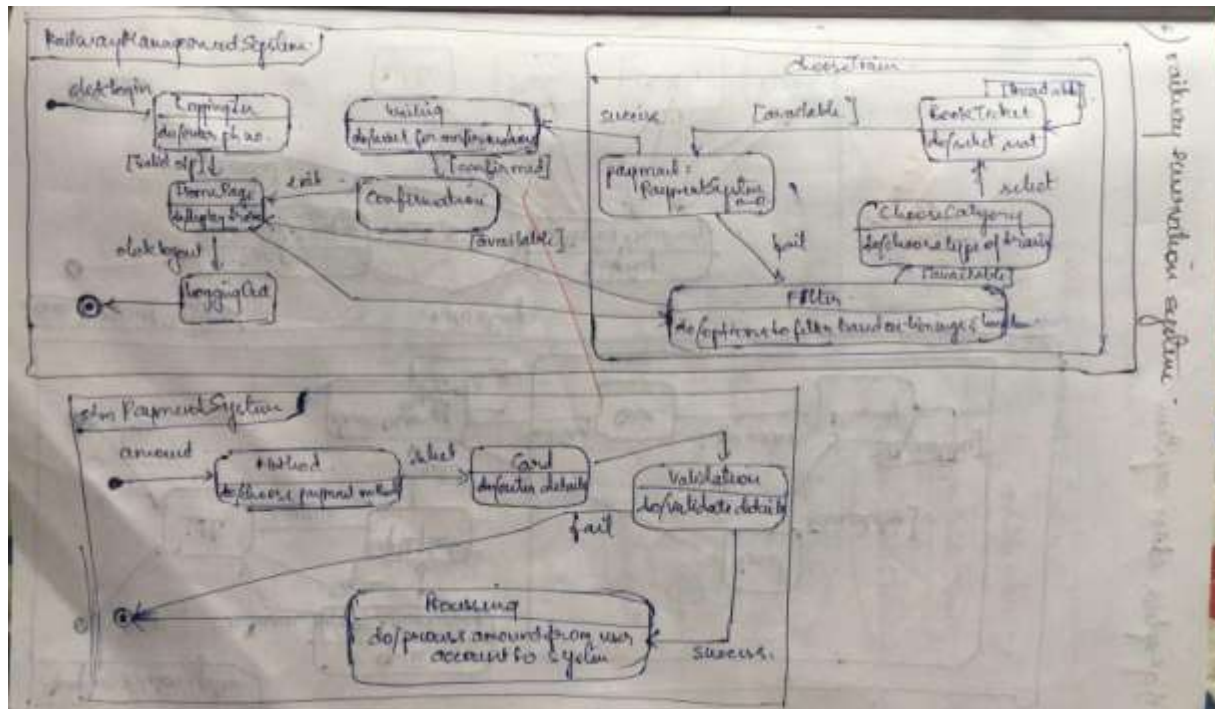 RailwayManagementSystem
click login
LoggingIn
do/enter ph no.
[valid otp]
HomePage
do/display trains
click logout
LoggingOut
exit
Waiting
do/wait for confirmation
[confirmed]
Confirmation
[available]
ChooseTrain
success
[available]
payment:
PaymentSystem
fail
BookTicket
do/select seat
select
ChooseCategory
do/choose type of train
[available]
Filter
do/options to filter based on timings &
railway reservation system
stm PaymentSystem
amount
Method
do/choose payment method
select
Card
do/enter details
Validation
do/validate details
fail
success.
Processing
do/process amount from user
account to system